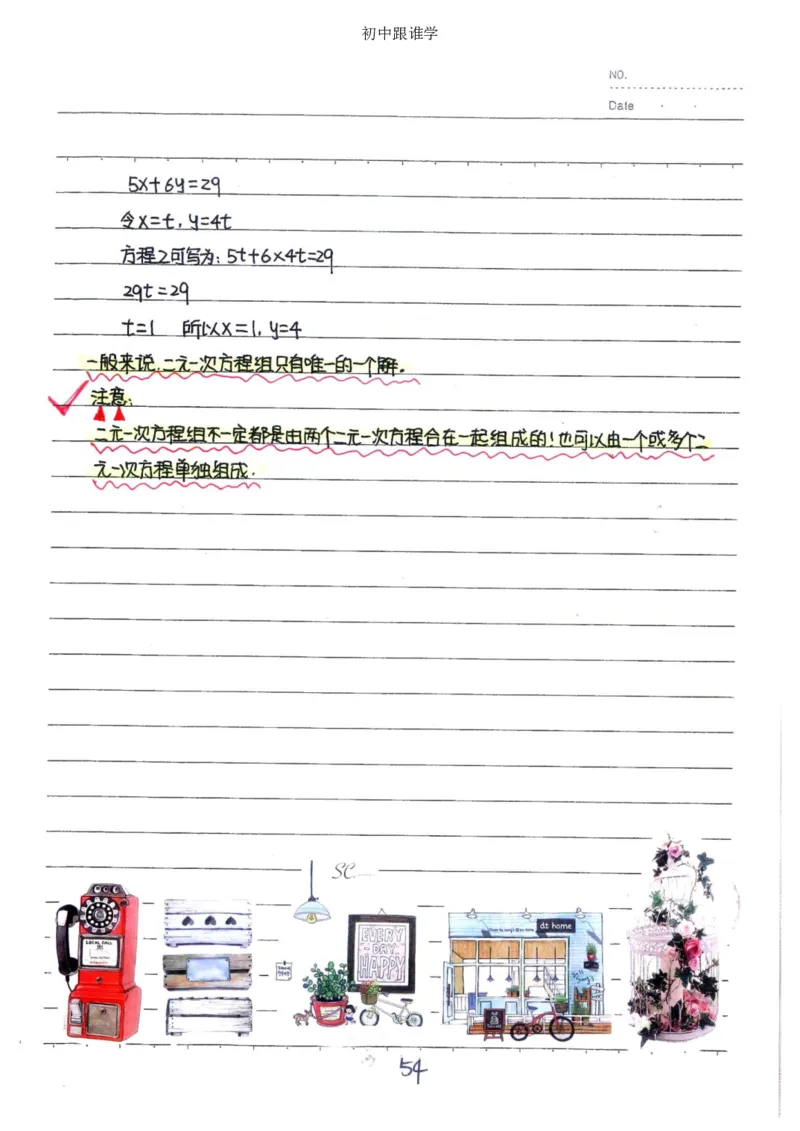 初中跟谁学
NO.
Date
5x+6y=29
令x=t,y=4t
方程2可写为:5t+6×4t=29
29t=29
t=1 所以x=1,y=4
一般来说,二元一次方程组只有唯一的一个解。
注意:
二元一次方程组不一定都是由两个二元一次方程合在一起组成的!也可以由一个或多个二
元一次方程单独组成.
SC....
LOCAL CALL
EVERY
DAY
HAPPY
at home
54